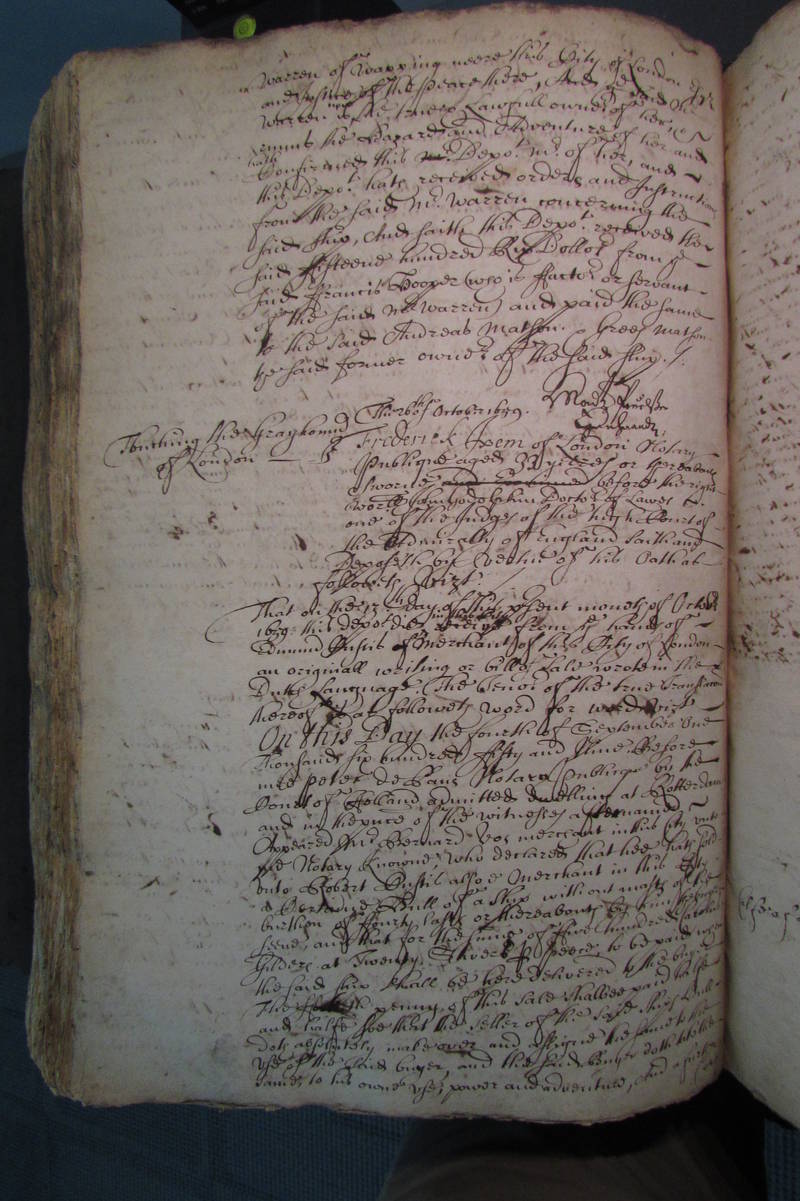 Warren of Wapping neere this City of London
and Justice of the Peace there, And the said Mr
Warren is the true & Lawfull owner of her,
runns the Hazard and Adventure of her and
hath Confirmed this Depot. Mr. of her, and
this Depot. hath received orders and Instructions
from the said Mr. Warren concerning the
said ship, And saith this Depot. received the
said fifteene hundred Rix Dollors from ye
said Francis Hooper (who is Factor or servant
of the said Mr Warren) and paid the same
to the said Andreas Mathson
the said former owners of the said ship.
The of October 1659.
Touching the Grayhound
of London
Frederick Ixem of London Notary
Publique aged yeeres or thereabouts
sworne before the right
worll John Godolphin Doctor of Lawes
one of the Judges of the high Court of
the Admiralty of England saith and
deposeth by vertue of his Oath as
followeth vizt.
That on the day of this present moneth of October
1659 this deponent did from the hands of
Edmund Custis Merchant of this City of London
an originall writing or bill of sale wrote in the
Dutch Language (The tenor of the true translation
thereof is as followeth word for word vizt
On this Day the fourth of September One
Thousand six hundred fifty and Nine Before
mee peter de Notary Publique by the
Court of Holland admitted dwelling at Rotterdam
and in the prnce of the witnesses afternamed
Appeared Mr. Bernard Vos merchant in this City unto
me Notary knowne, who declared that hee hath sold
unto Robert Custis alsoe Merchant in this City
a Certaine Hull of a ship without masts of the
burthen of lasts or thereabouts by him
seene, and that for the summe of five hundred Carolus
Gilders at Twenty Stivers p peece, to be paid when
the said ship shall be here delivered to the buyer
The penny of this sale shalbee paid halfe
and halfe Soe that the seller of the said ships Hull
doth absolutely make over and assigne the same to the
use of the said buyer, and the said buyer doth take the
same to his owne use, power and adventure, And